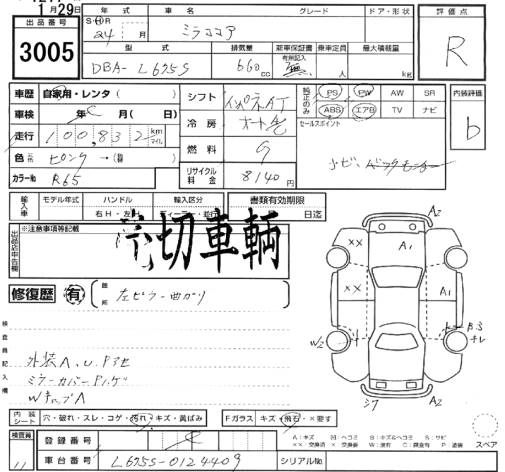 1月29日
年式 車名 グレード ドア・形状 評価点
出品番号
S・H・R
24 月 ミラココア
R
3005
型式 排気量 新車保証書 乗車定員 最大積載量
有・無記入
DBA- L675S 660cc 無 人 kg
車歴 自家用・レンタ ( )
車検 年 月
走行 100,832 km マイル
色 ピンク → (替)
カラーNo R65
シフト インパネAT
冷房 オートA/C
燃料 G
リサイクル料金 8140円
純正のみ PS PW AW SR
ABS エアB TV ナビ
セールスポイント
ナビ、バックモニター
内装評価
b
輸入車 モデル年式 ハンドル 輸入区分
右H・左 ディーラー・並行
書類有効期限
日迄
出品店申告欄
※注意事項等記載
売切車輌
修復歴 有 箇所 左ピラー曲がり
検査員記入欄
外装A、U、Pスセ
ミラーカバーPハゲ
WキャップA
内装シート 穴・破れ・スレ・コゲ・汚れ・キズ・黄ばみ Fガラス キズ・飛石・×要す
検査員 登録番号
11 車台番号 L675S-0124409 シリアルNo.
A2
XX A1
XX A1
W2 B3
チレ
シク A2
A:キズ U:ヘコミ B:キズ&ヘコミ S:サビ
XX:交換済 X:要交換 W:波打 C:腐食有 P:塗装
スペア